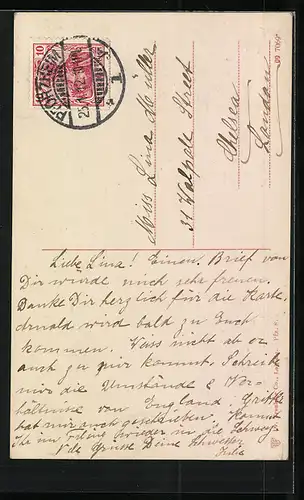 PFORZHEIM
10
1
Miss Lina Müller
31 Walpole Street
Chelsea
London
Liebe Lina! Einen Brief von
Dir würde mich sehr freuen.
Danke Dir herzlich für die Karte.
Arnold wird bald zu Euch
kommen. Weiss nicht ob er
auch zu mir kommt. Schreibe
mir die Umstände & Ver-
hältnisse von England.
hat mir auch geschrieben. Kommst
Du wieder in die Schweiz
Viele Grüsse Deine Schwester
Julia